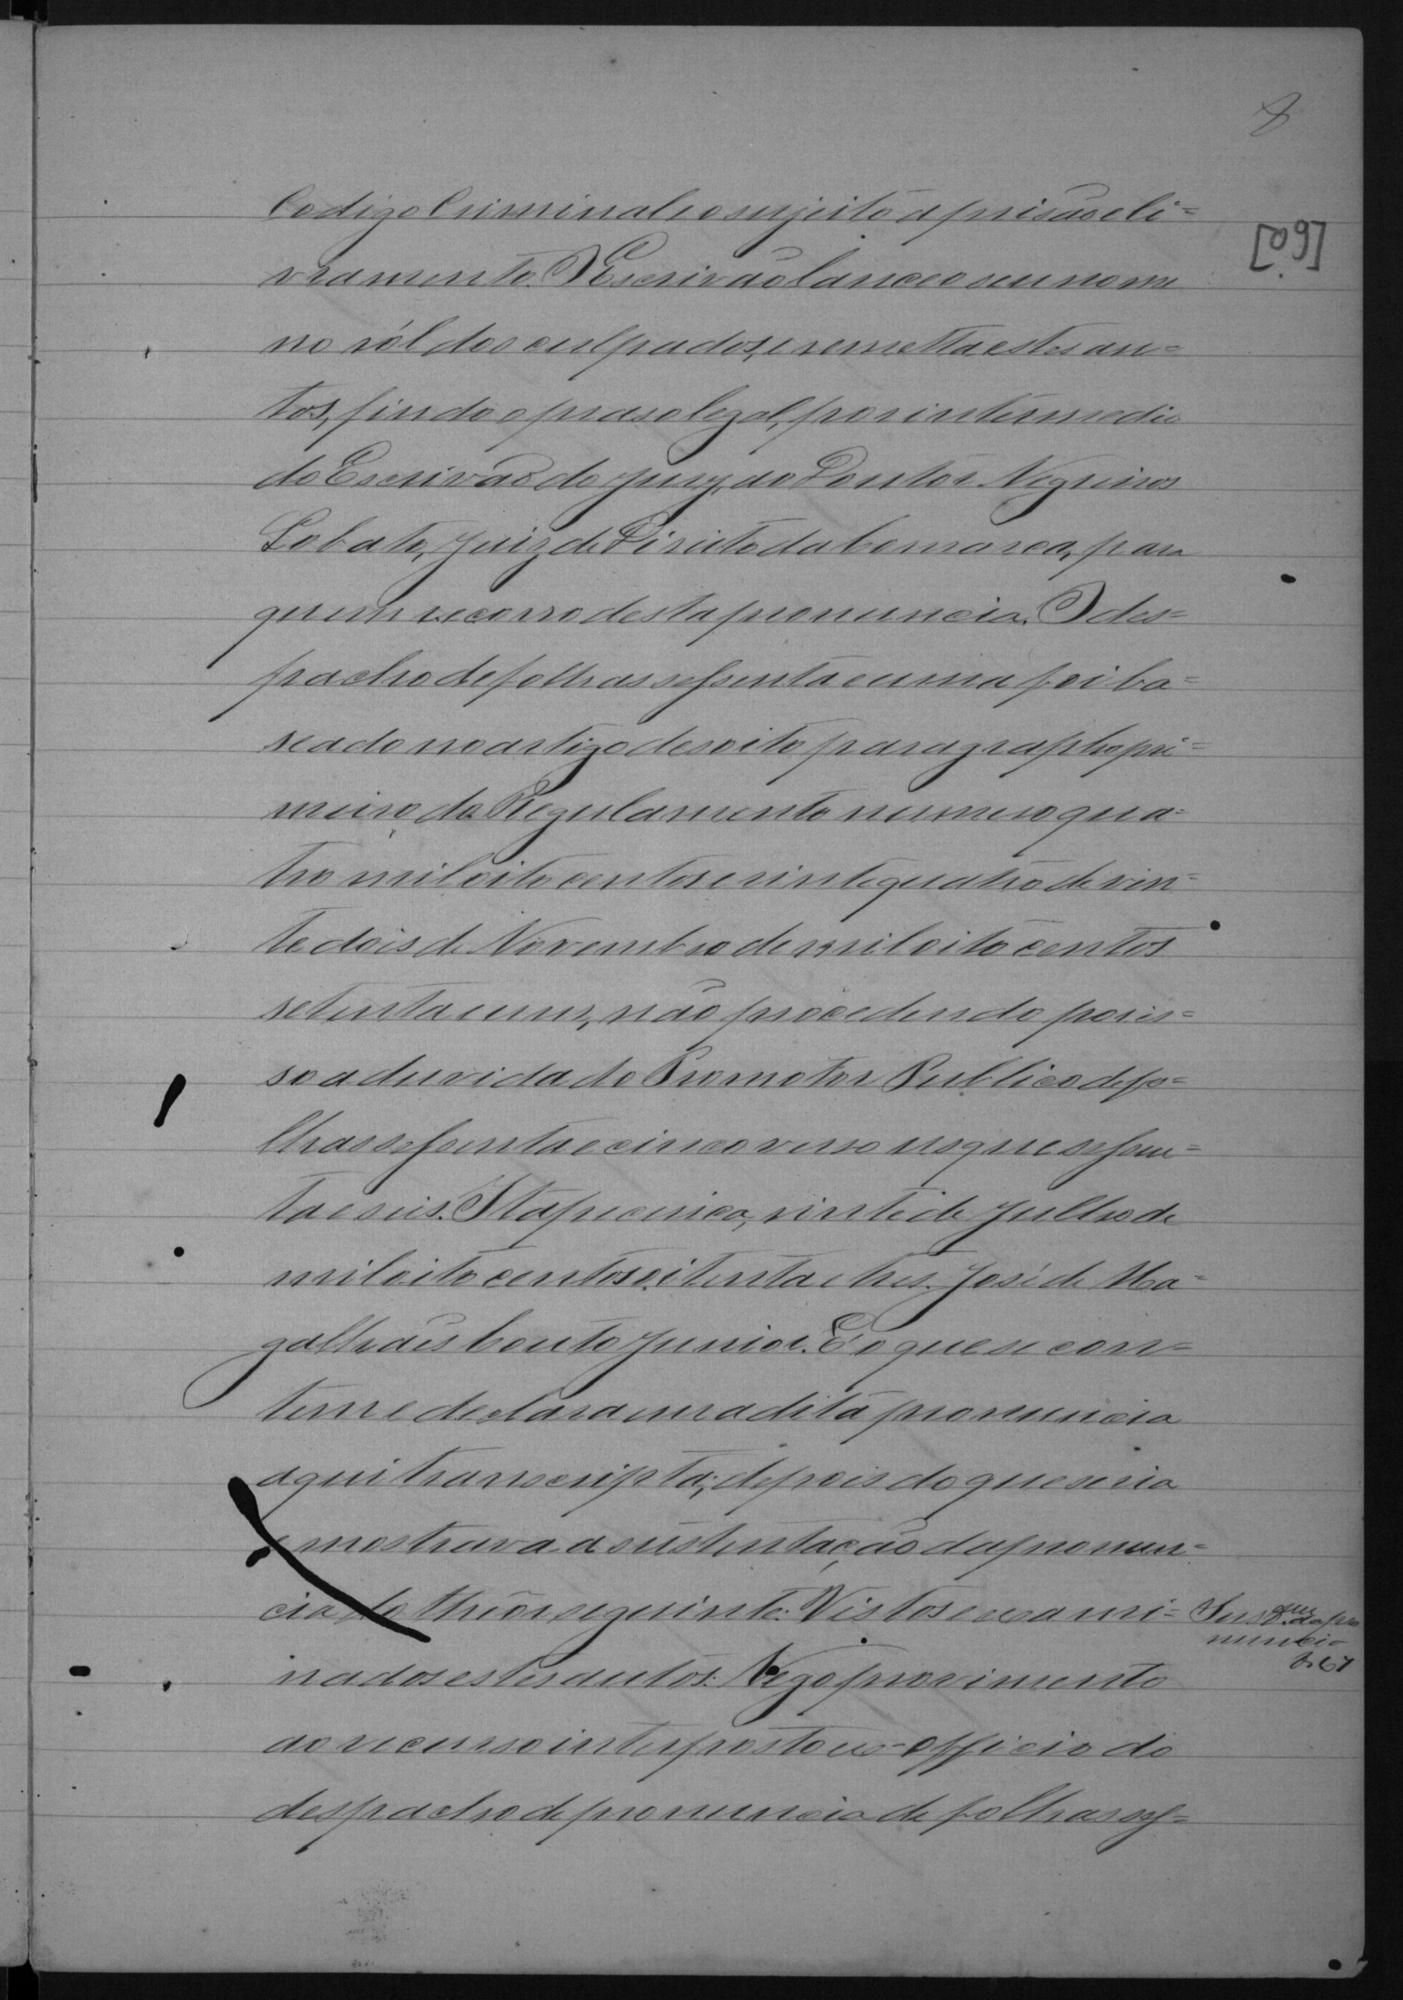 8
[09]
Codigo Criminal e o sujeito a prisão e li=
vramento. O Escrivão lance o seu nome
no ról dos culpados, e remetta estes au=
tos, findo o praso legal, por intermedio
do Escrivão do jury, ao Doutor Negreiros
Lobato, Juiz de Direito da Comarca, para
quem recorro desta pronuncia. O des=
pacho de folhas sessenta e uma foi ba=
seado no artigo desoito paragrapho pri=
meiro do Regulamento numero qua=
tro mil oito centos e vinte quatro de vin=
te dois de Novembro de mil oito centos
setenta e um, não procedendo por is=
so a duvida do Promotor Publico de fo=
lhas sessenta e cinco verso usque sessen=
ta e seis. Itapecerica, vinte de Julho de
mil oito centos oitenta e tres. José de Ma=
galhães Couto Junior. É o que se con=
tem e declarava em a dita pronuncia
aqui transcripta; depois do que se via
e mostrava a sustentação da pronun=
cia do thêor seguinte: Vistos e exami=
nados estes autos: Nego provimento
ao recurso interposto ex-officio do
despacho de pronuncia de folhas ses=
da pro
nuncia